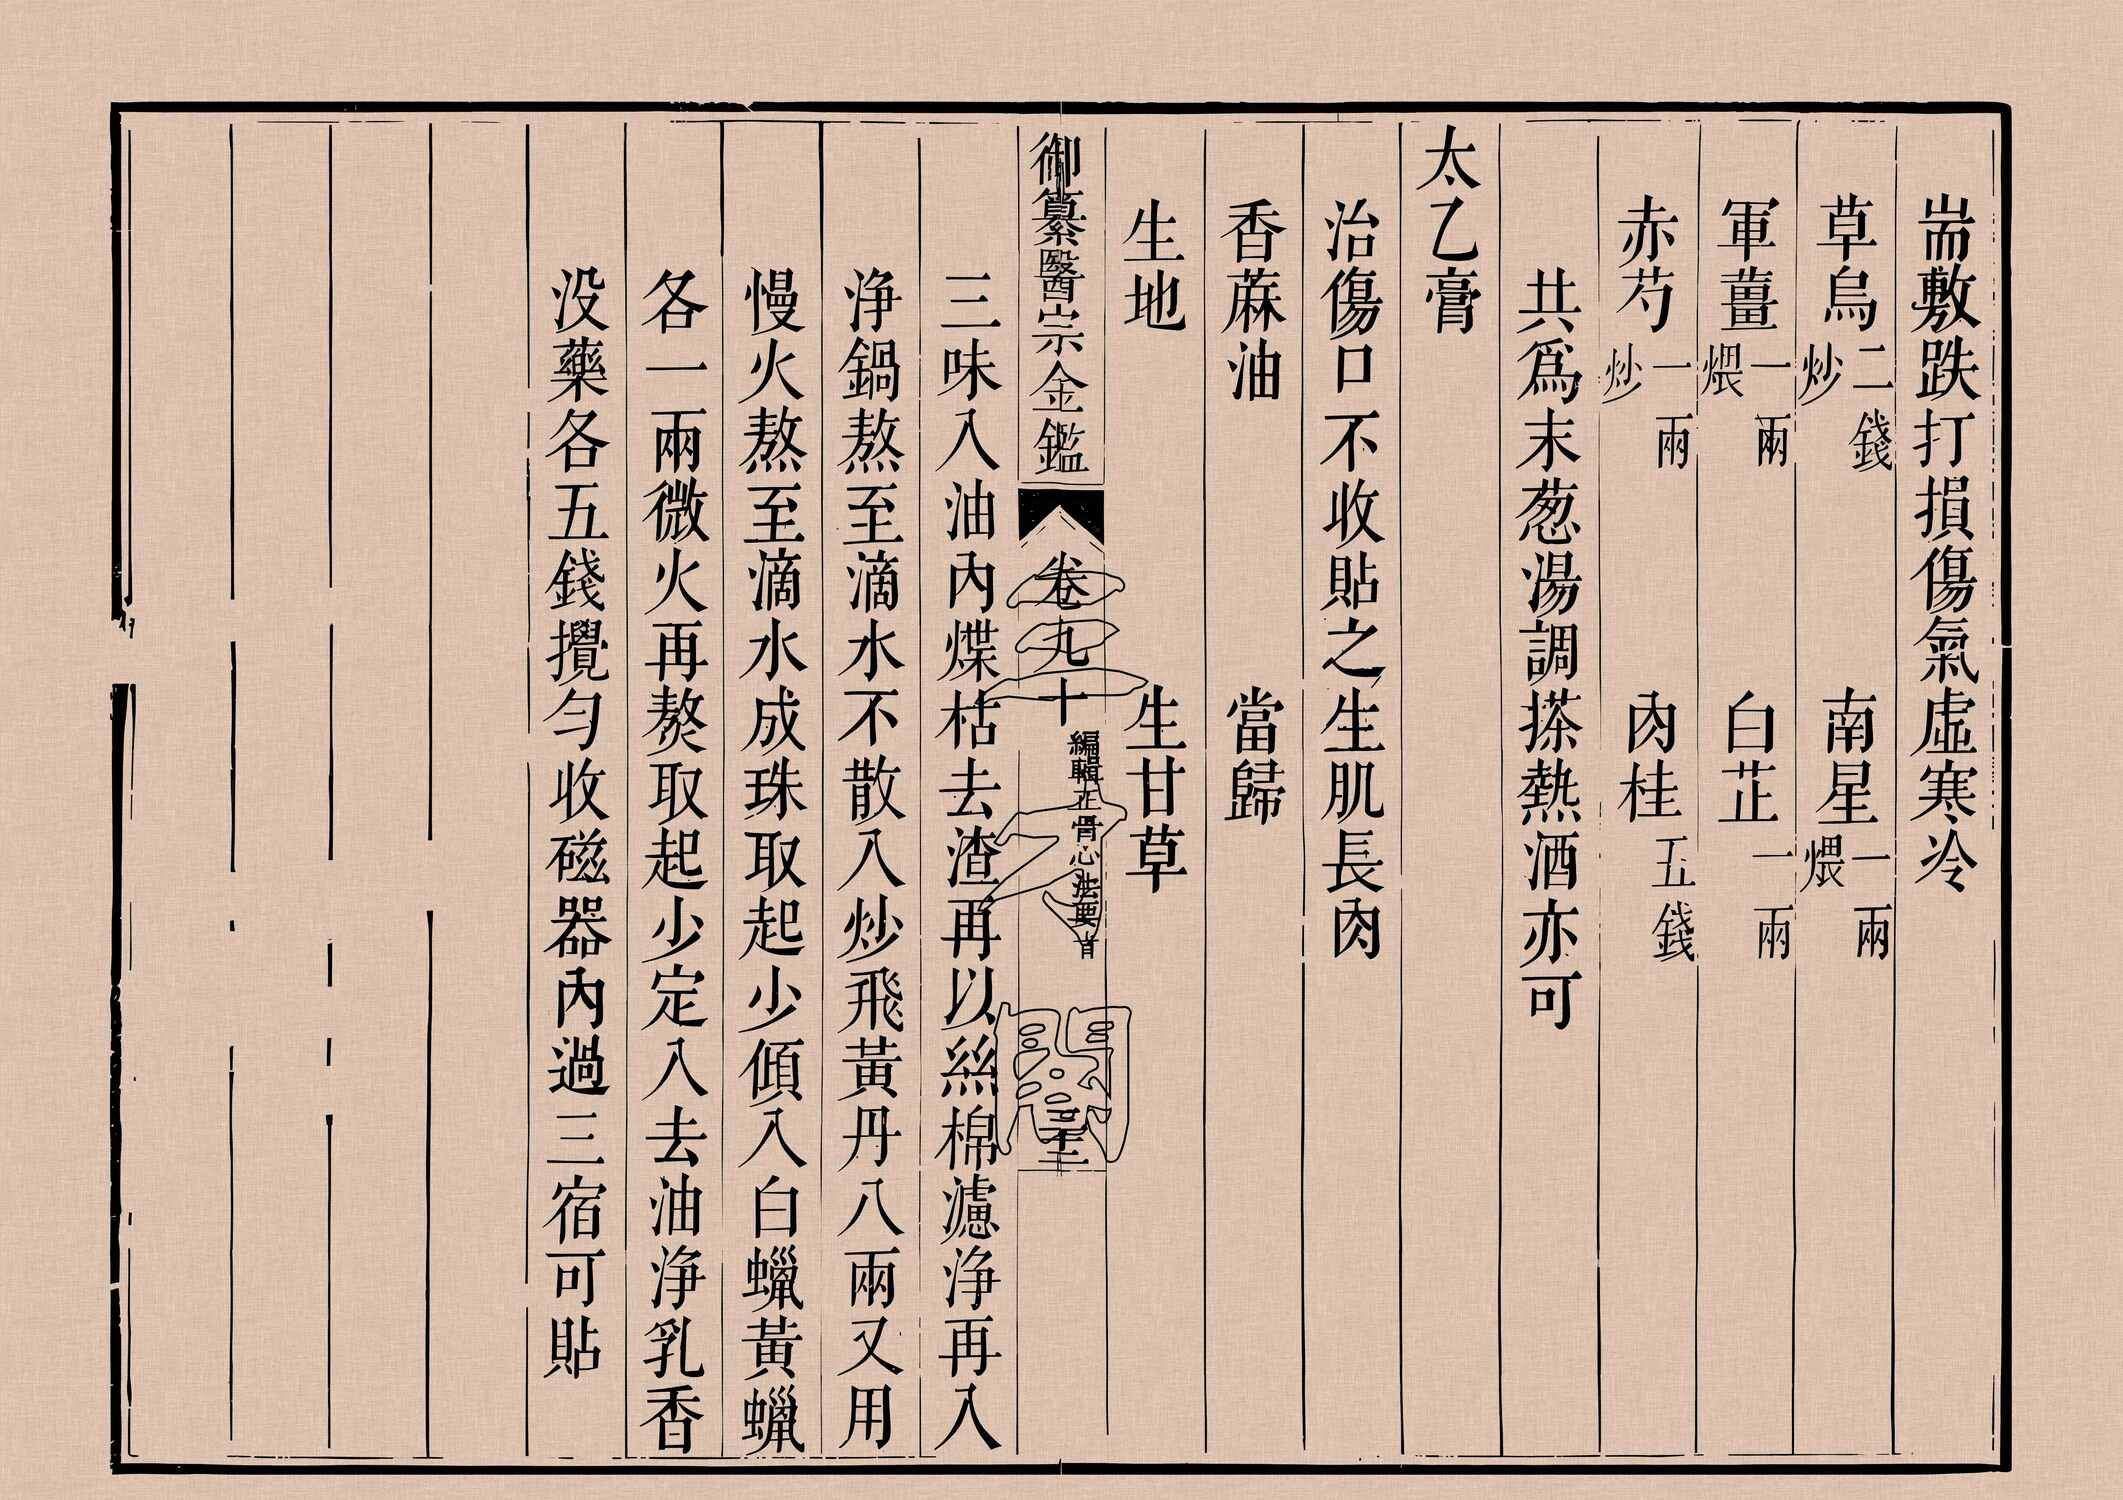 耑敷跌打損傷氣虛寒冷
草烏二錢炒 南星一兩煨
軍薑一兩煨 白芷一兩
赤芍一兩炒 肉桂五錢
共爲末葱湯調搽熱酒亦可
太乙膏
治傷口不收貼之生肌長肉
香蔴油 當歸
生地 生甘草
御纂醫宗金鑑 卷九十 編輯正骨心法要旨
三味入油內煠枯去渣再以絲棉濾净再入
净鍋熬至滴水不散入炒飛黃丹八兩又用
慢火熬至滴水成珠取起少傾入白蠟黃蠟
各一兩微火再熬取起少定入去油净乳香
没藥各五錢攪勻收磁器內過三宿可貼